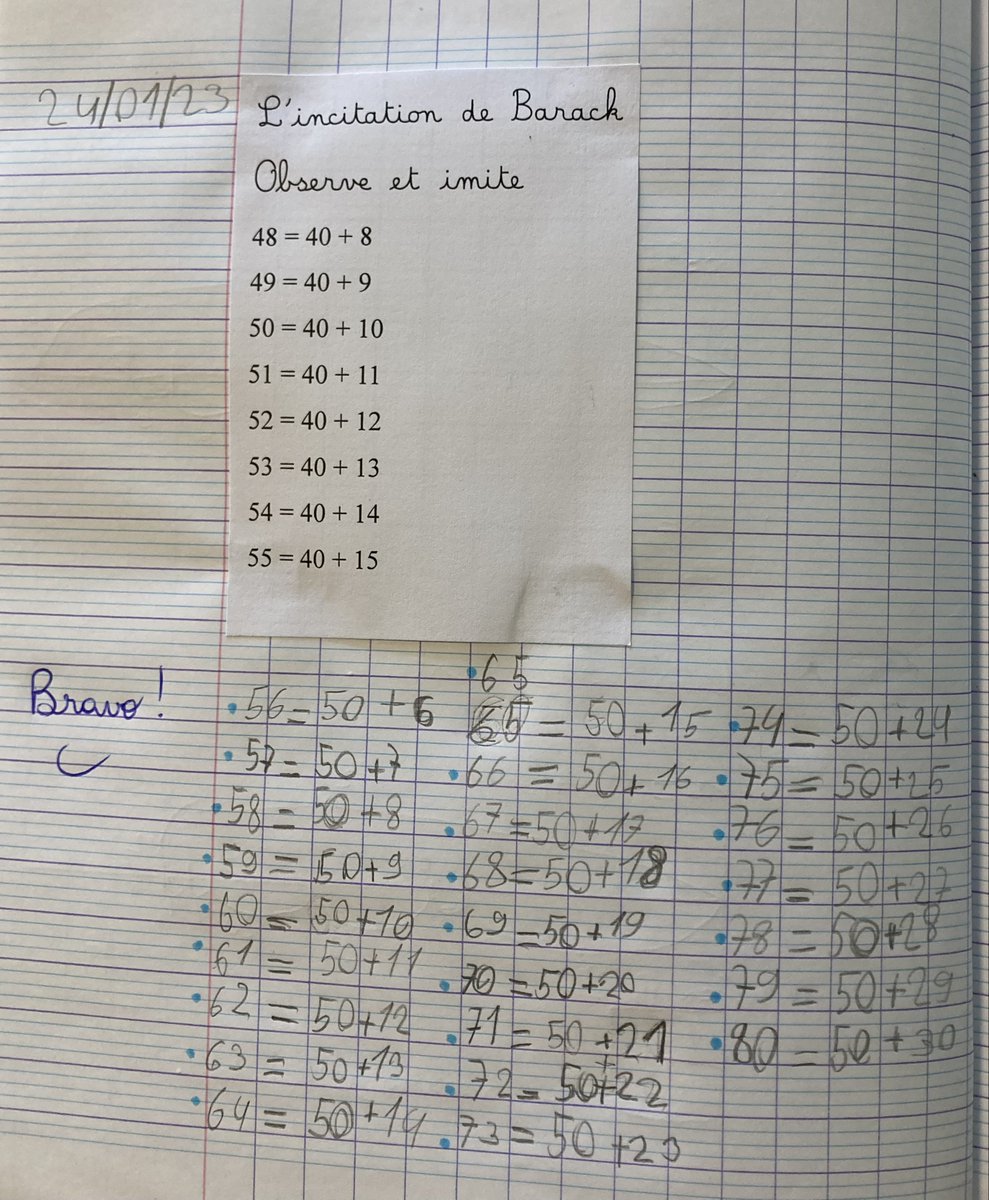 24/01/23
L'incitation de Barack
Observe et imite
48 = 40 + 8
49 = 40 + 9
50 = 40 + 10
51 = 40 + 11
52 = 40 + 12
53 = 40 + 13
54 = 40 + 14
55 = 40 + 15
Bravo!
56 = 50 + 6
57 = 50 + 7
58 = 50 + 8
59 = 50 + 9
60 = 50 + 10
61 = 50 + 11
62 = 50 + 12
63 = 50 + 13
64 = 50 + 14
65
65 = 50 + 15
66 = 50 + 16
67 = 50 + 17
68 = 50 + 18
69 = 50 + 19
70 = 50 + 20
71 = 50 + 21
72 = 50 + 22
73 = 50 + 23
74 = 50 + 24
75 = 50 + 25
76 = 50 + 26
77 = 50 + 27
78 = 50 + 28
79 = 50 + 29
80 = 50 + 30